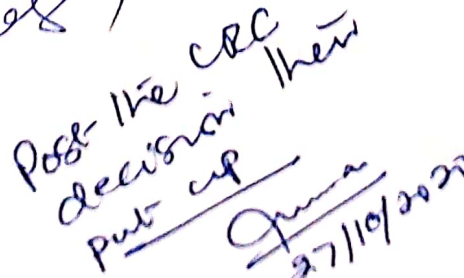 Post the CRC
decision then
put up
27/10/202